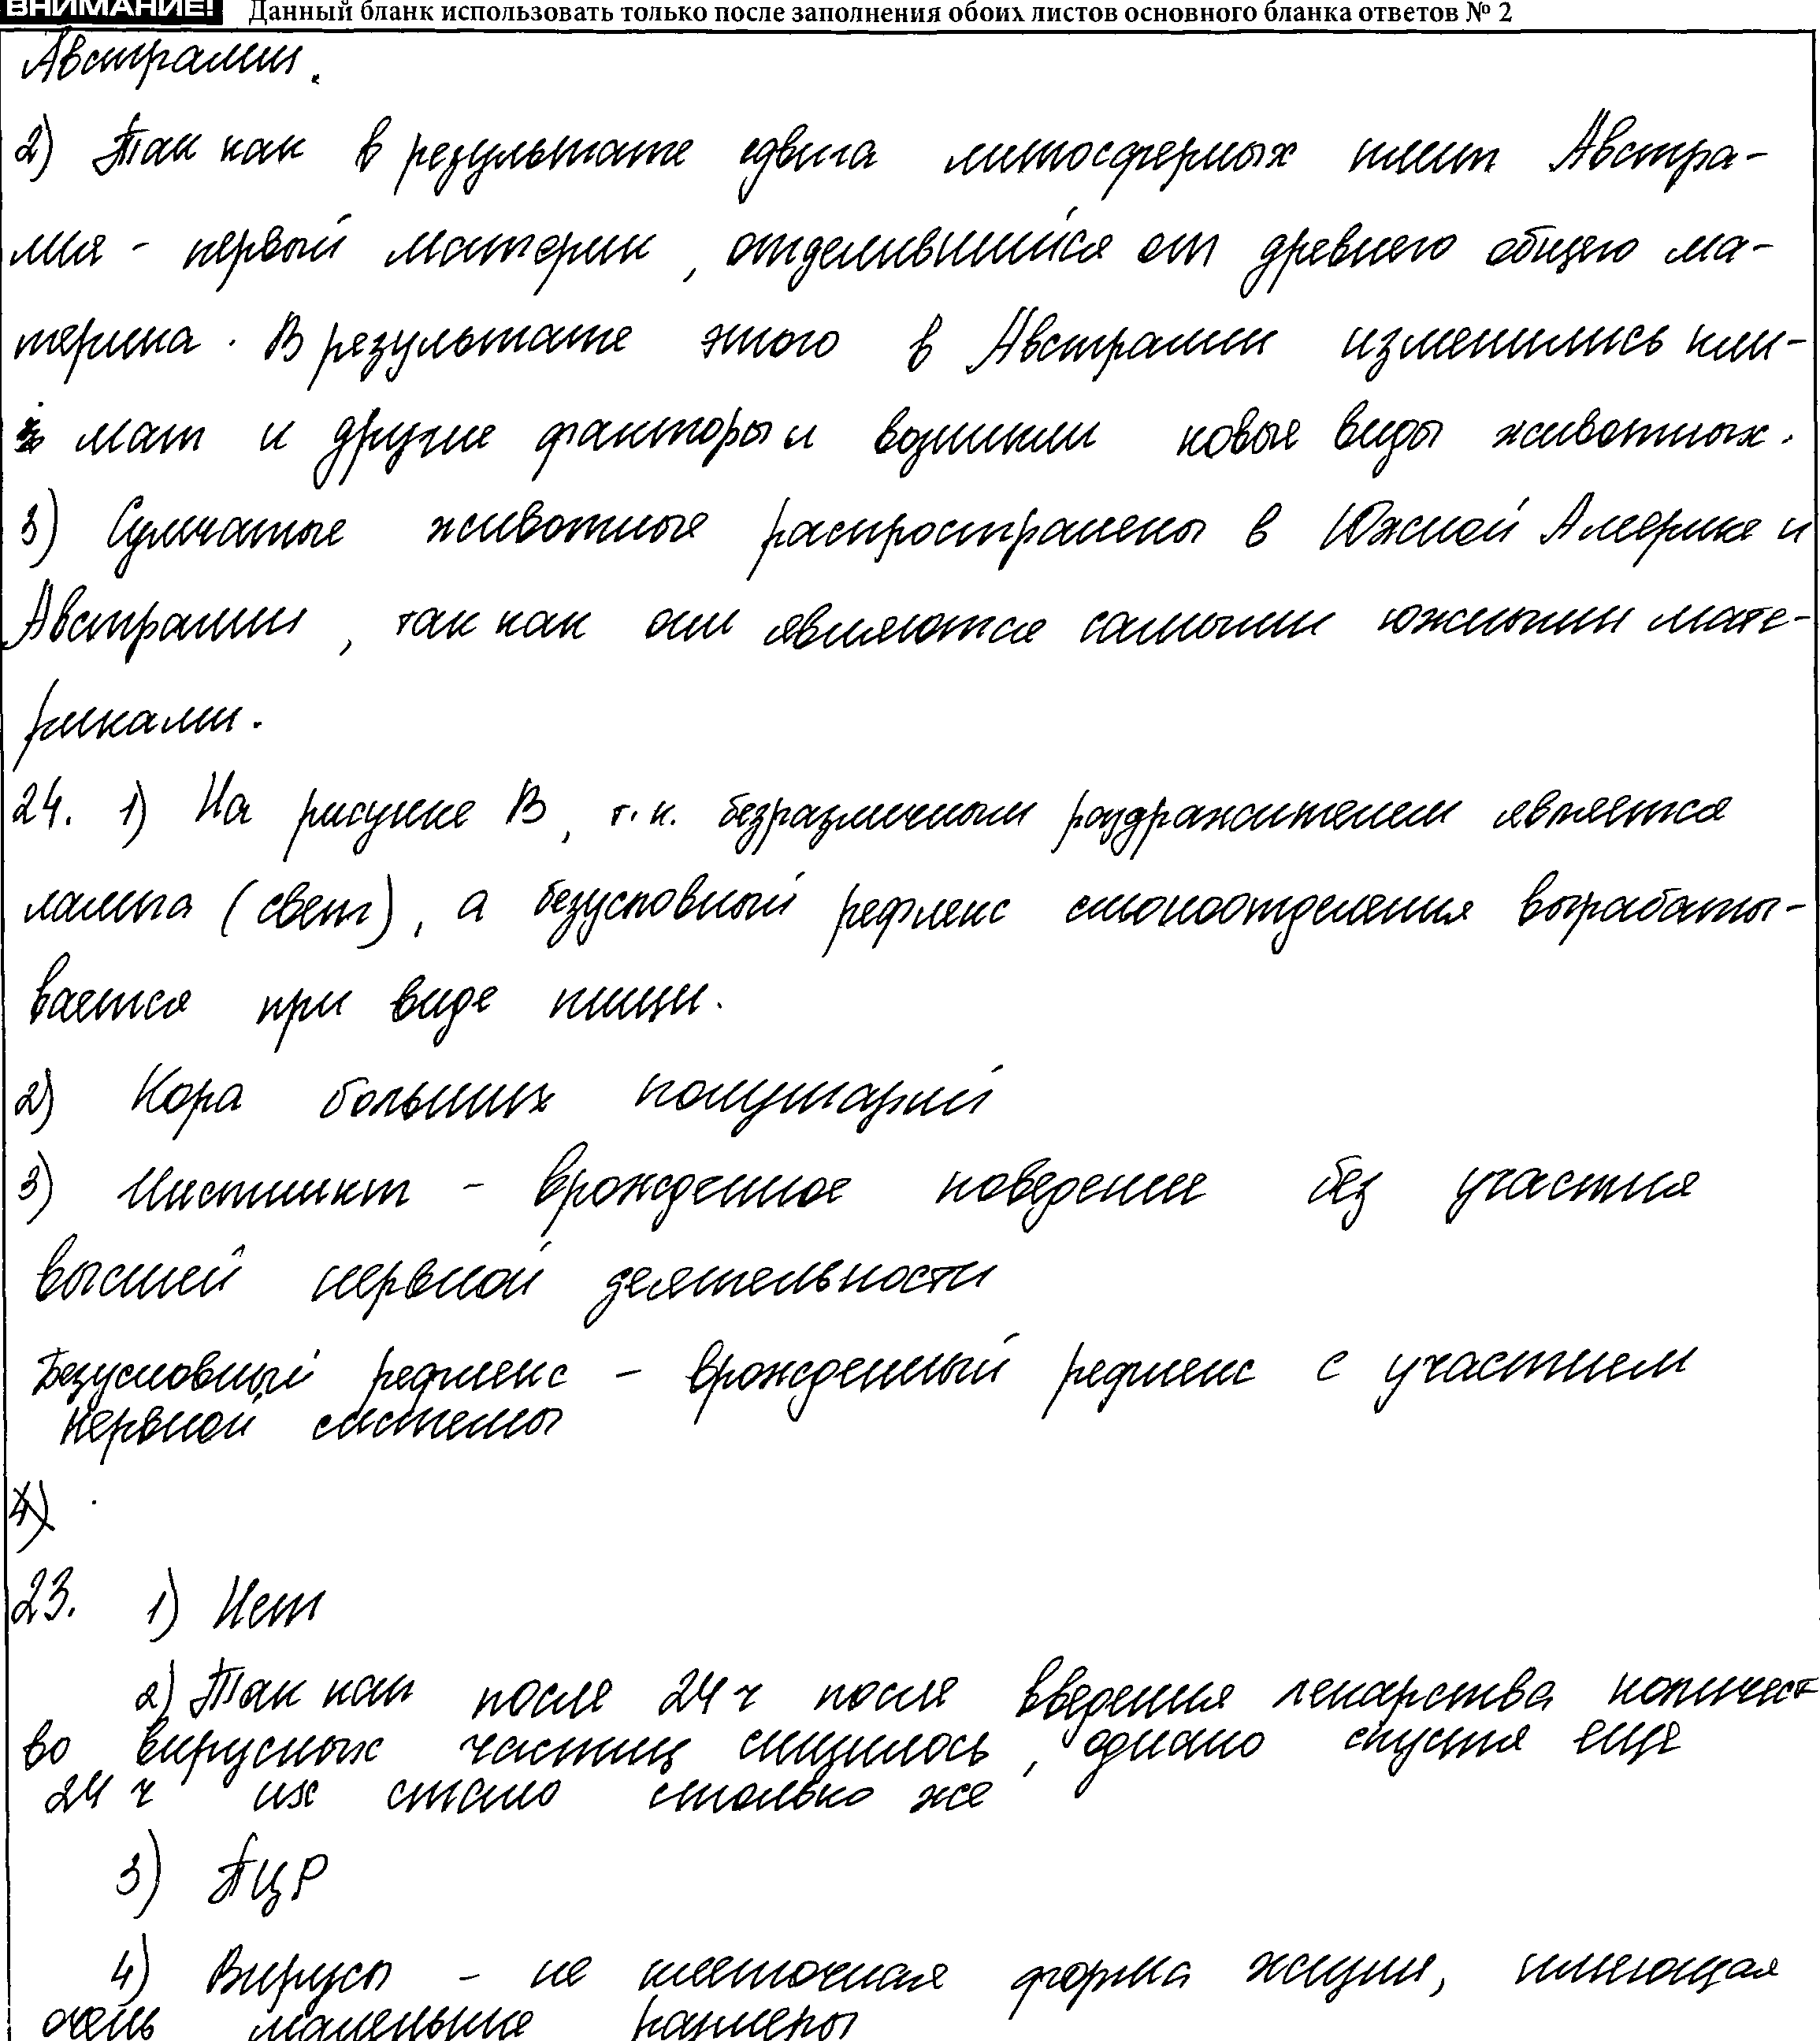 ВНИМАНИЕ! Данный бланк использовать только после заполнения обоих листов основного бланка ответов № 2
Австралии.
2) Так как в результате сдвига литосферных плит Австра-
лия - первый материк, отделившийся от древнего общего ма-
терика. В результате этого в Австралии изменились кли-
мат и другие факторы и возникли новые виды животных.
3) Сумчатые животные распространены в Южной Америке и
Австралии, так как они являются самыми южными мате-
риками.
24. 1) На рисунке В, т.к. безразличным раздражителем является
лампа (свет), а безусловный рефлекс слюноотделения вырабаты-
вается при виде пищи.
2) Кора больших полушарий
3) Инстинкт - врожденное поведение без участия
высшей нервной деятельности
Безусловный рефлекс - врожденный рефлекс с участием
нервной системы
4)
23. 1) Нет
2) Так как после 24 ч после введения лекарства количест
во вирусных частиц снизилось, однако спустя еще
24 ч их стало столько же
3) ПЦР
4) Вирусы - не клеточная форма жизни, имеющая
очень маленькие размеры